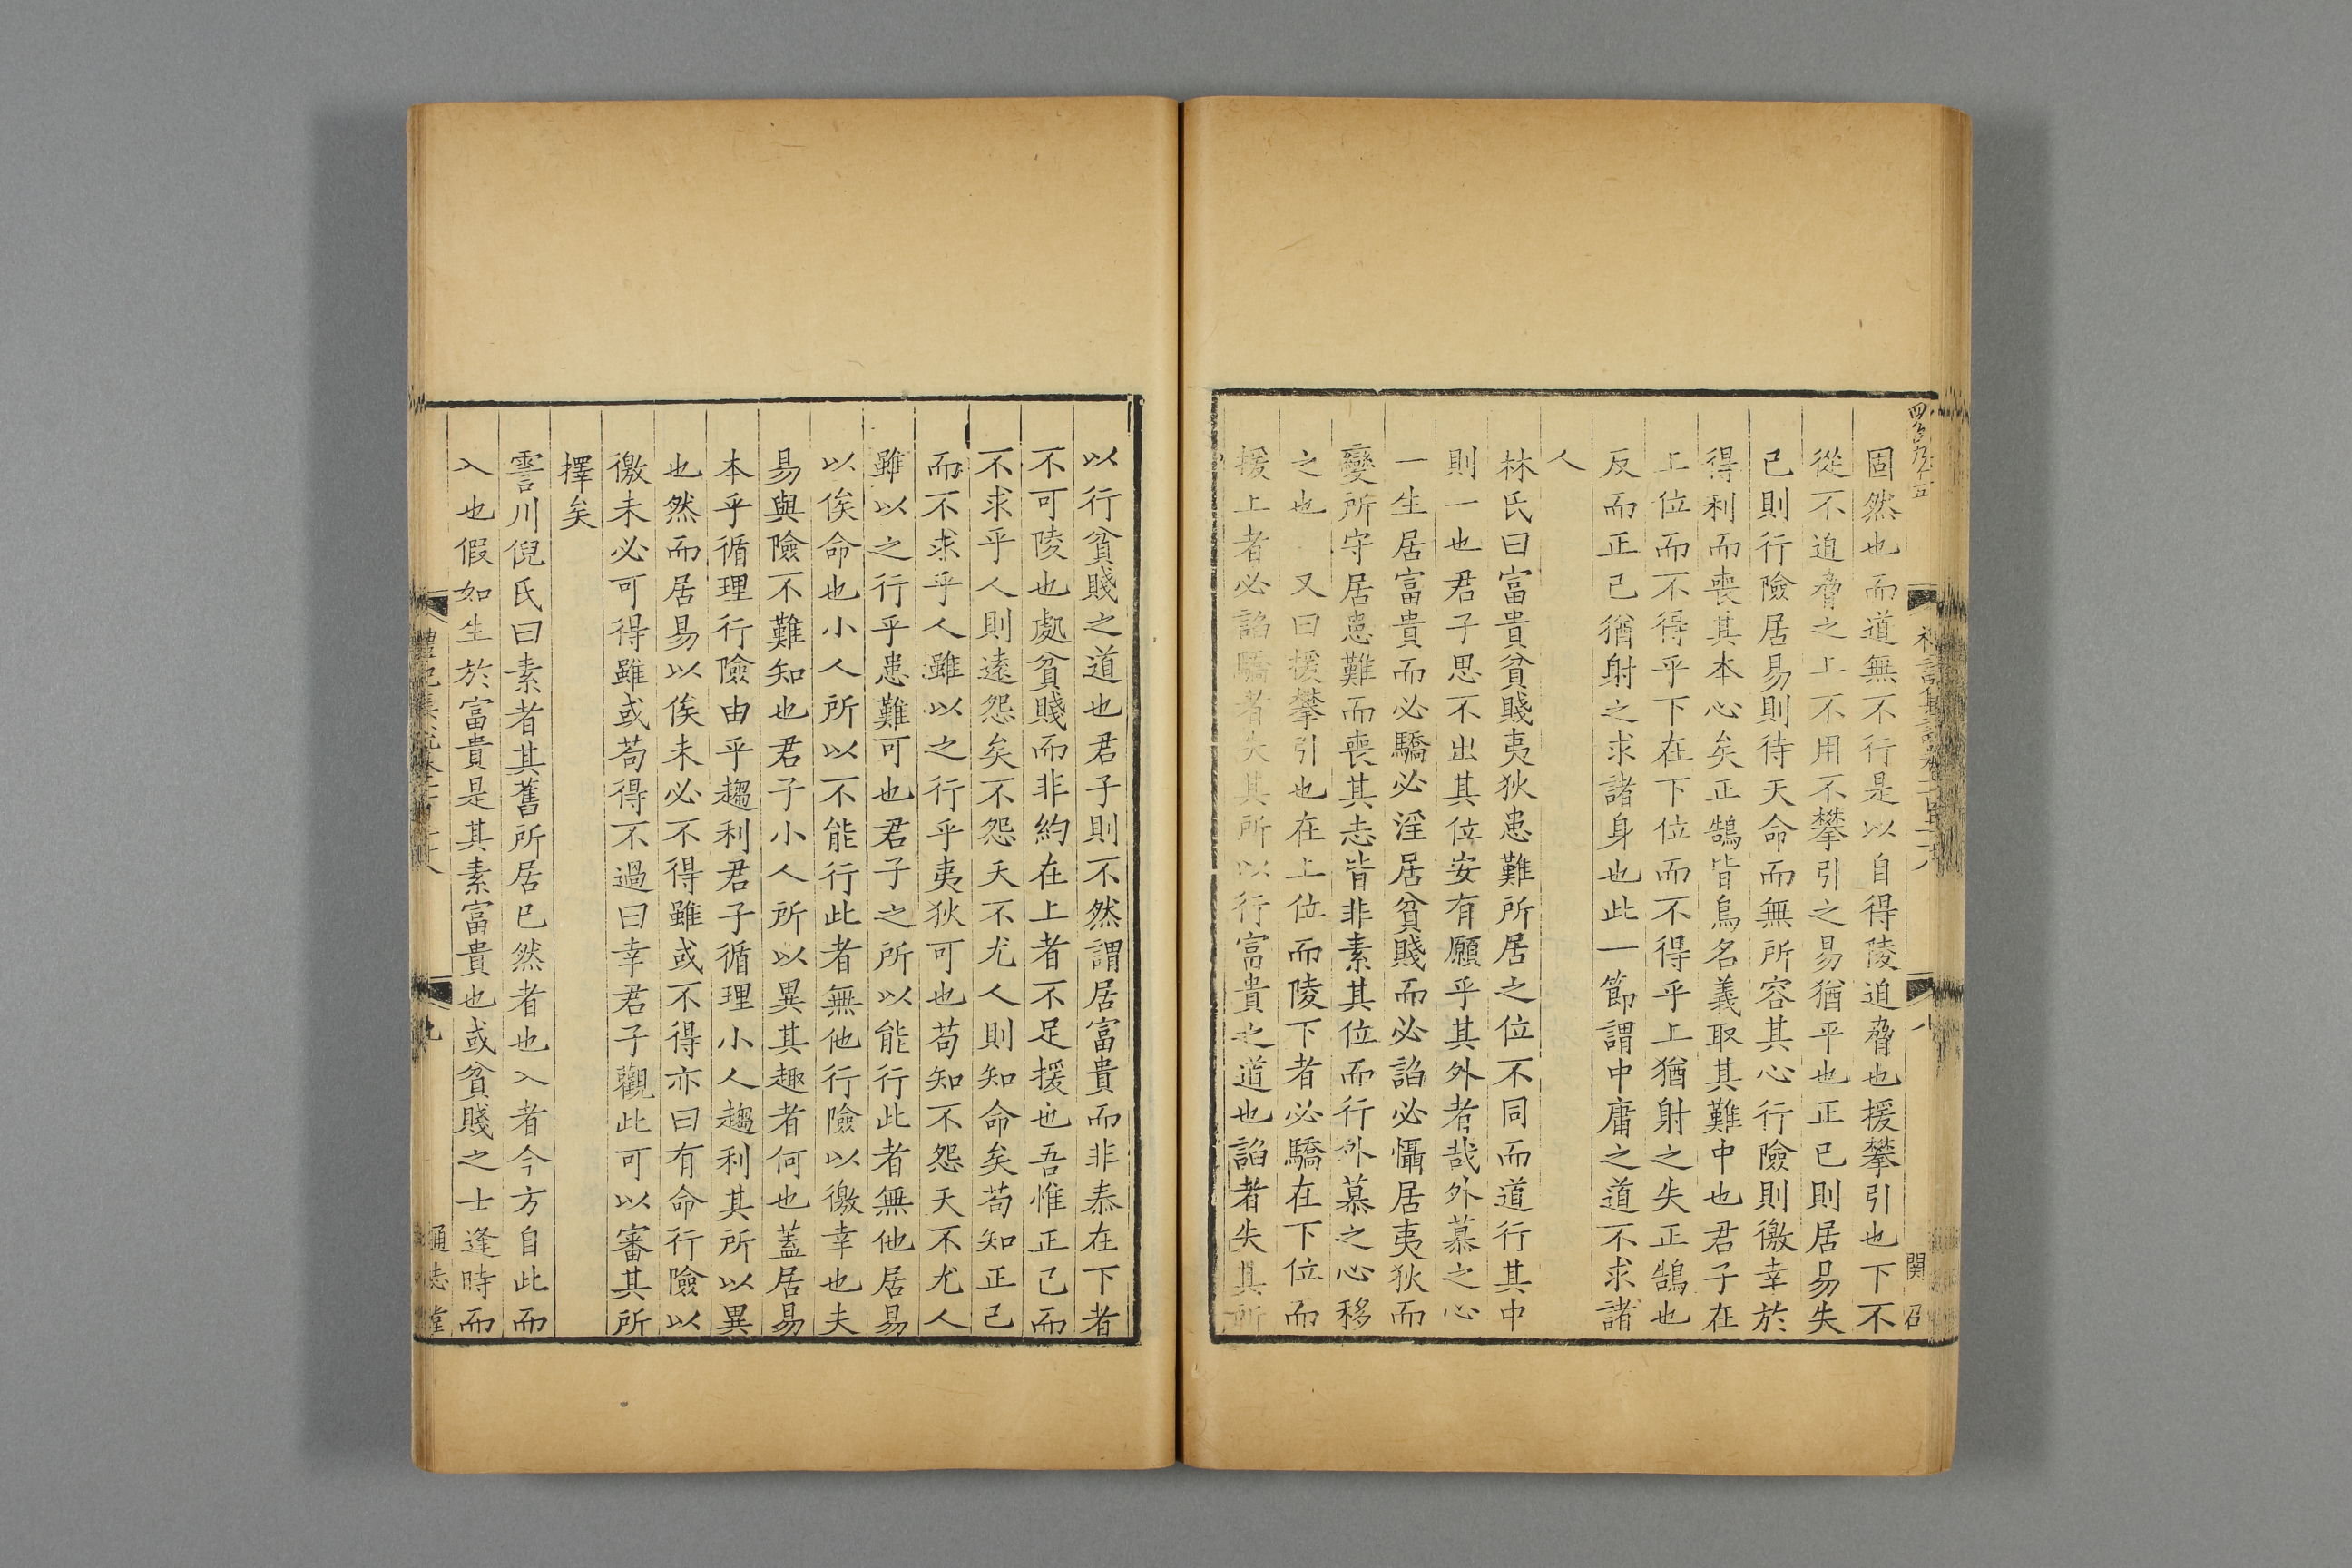 固然也而道無不行是以自得陵迫脅也援攀引也下不
從不迫脅之上不用不攀引之易猶平也正已則居易失
已則行險居易則待天命而無所容其心行險則徼幸於
得利而喪其本心矣正鵠皆鳥名義取其難中也君子在
上位而不得乎下在下位而不得乎上猶射之失正鵠也
反而正已猶射之求諸身也此一節謂中庸之道不求諸
人
林氏曰富貴貧賤夷狄患難所居之位不同而道行其中
則一也君子思不出其位安有願乎其外者哉外慕之心
一生居富貴而必驕必淫居貧賤而必諂必懾居夷狄而
變所守居患難而喪其志皆非素其位而行外慕之心移
之也 又曰援攀引也在上位而陵下者必驕在下位而
援上者必諂驕者失其所以行富貴之道也諂者失其所
以行貧賤之道也君子則不然謂居富貴而非泰在下者
不可陵也處貧賤而非約在上者不足援也吾惟正己而
不求乎人則遠怨矣不怨天不尤人則知命矣苟知正己
而不求乎人雖以之行乎夷狄可也苟知不怨天不尤人
雖以之行乎患難可也君子之所以能行此者無他居易
以俟命也小人所以不能行此者無他行險以徼幸也夫
易與險不難知也君子小人所以異其趣者何也蓋居易
本乎循理行險由乎趨利君子循理小人趨利其所以異
也然而居易以俟未必不得雖或不得亦曰有命行險以
徼未必可得雖或苟得不過曰幸君子觀此可以審其所
擇矣
霅川倪氏曰素者其舊所居已然者也入者今方自此而
入也假如生於富貴是其素富貴也或貧賤之士逢時而
九
通志堂